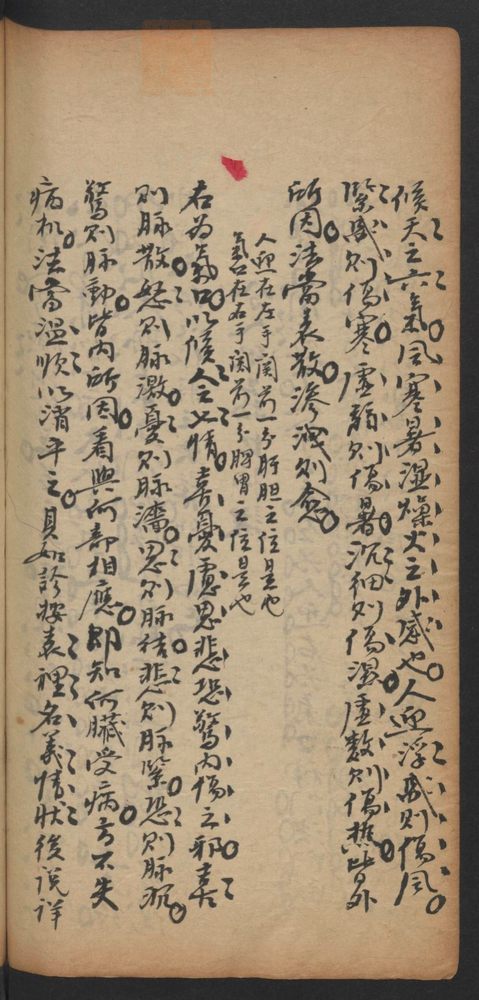 候天之六氣風寒暑濕燥火之外感也人迎浮盛則傷風
緊盛則傷寒虛弱則傷暑沉細則傷濕虛數則傷熱皆外
所因法當表散滲泄則愈
人迎在左手関前一分肝胆之位是也
氣口在右手関前一分脾胃之位是也
右為氣口以候人之七情喜憂慮思悲恐驚內傷之邪喜
則脉散怒則脉激憂則脉濇思則脉结悲則脉緊恐則脉沉
驚則脉動皆內所因看與何部相應即知何臟受病方不失
病机法當温順以消平之其如診按表裡名義情狀後説详